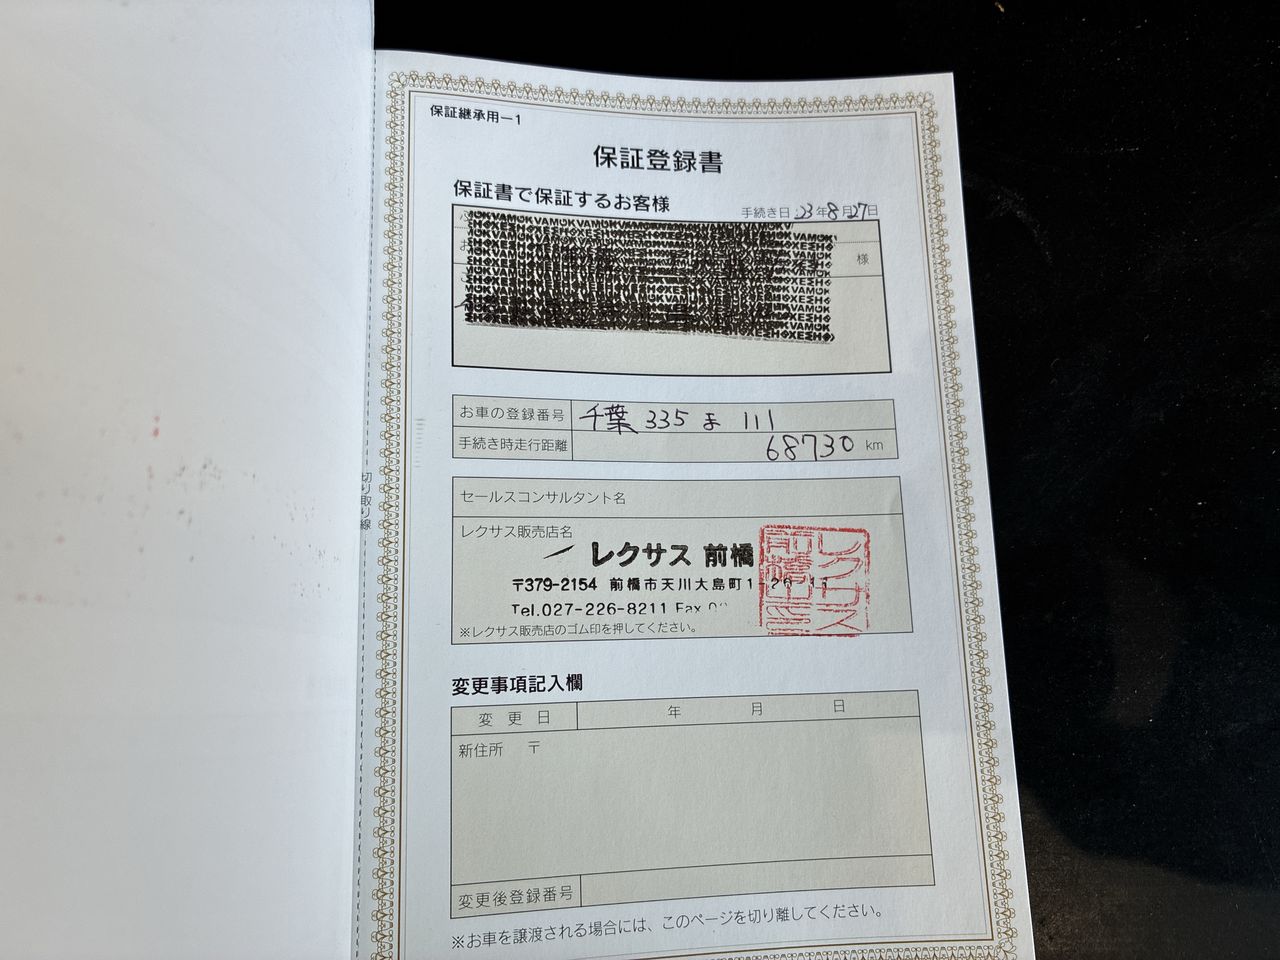 保証継承用ー1
保証登録書
保証書で保証するお客様
手続き日:23年8月27日
様
お車の登録番号 千葉 335 ま 111
手続き時走行距離 68730 km
セールスコンサルタント名
レクサス販売店名
レクサス 前橋
〒379-2154 前橋市天川大島町1-26-11
Tel.027-226-8211 Fax
レクサス前橋
※レクサス販売店のゴム印を押してください。
変更事項記入欄
変更日 年 月 日
新住所 〒
変更後登録番号
※お車を譲渡される場合には、このページを切り離してください。
切り取り線